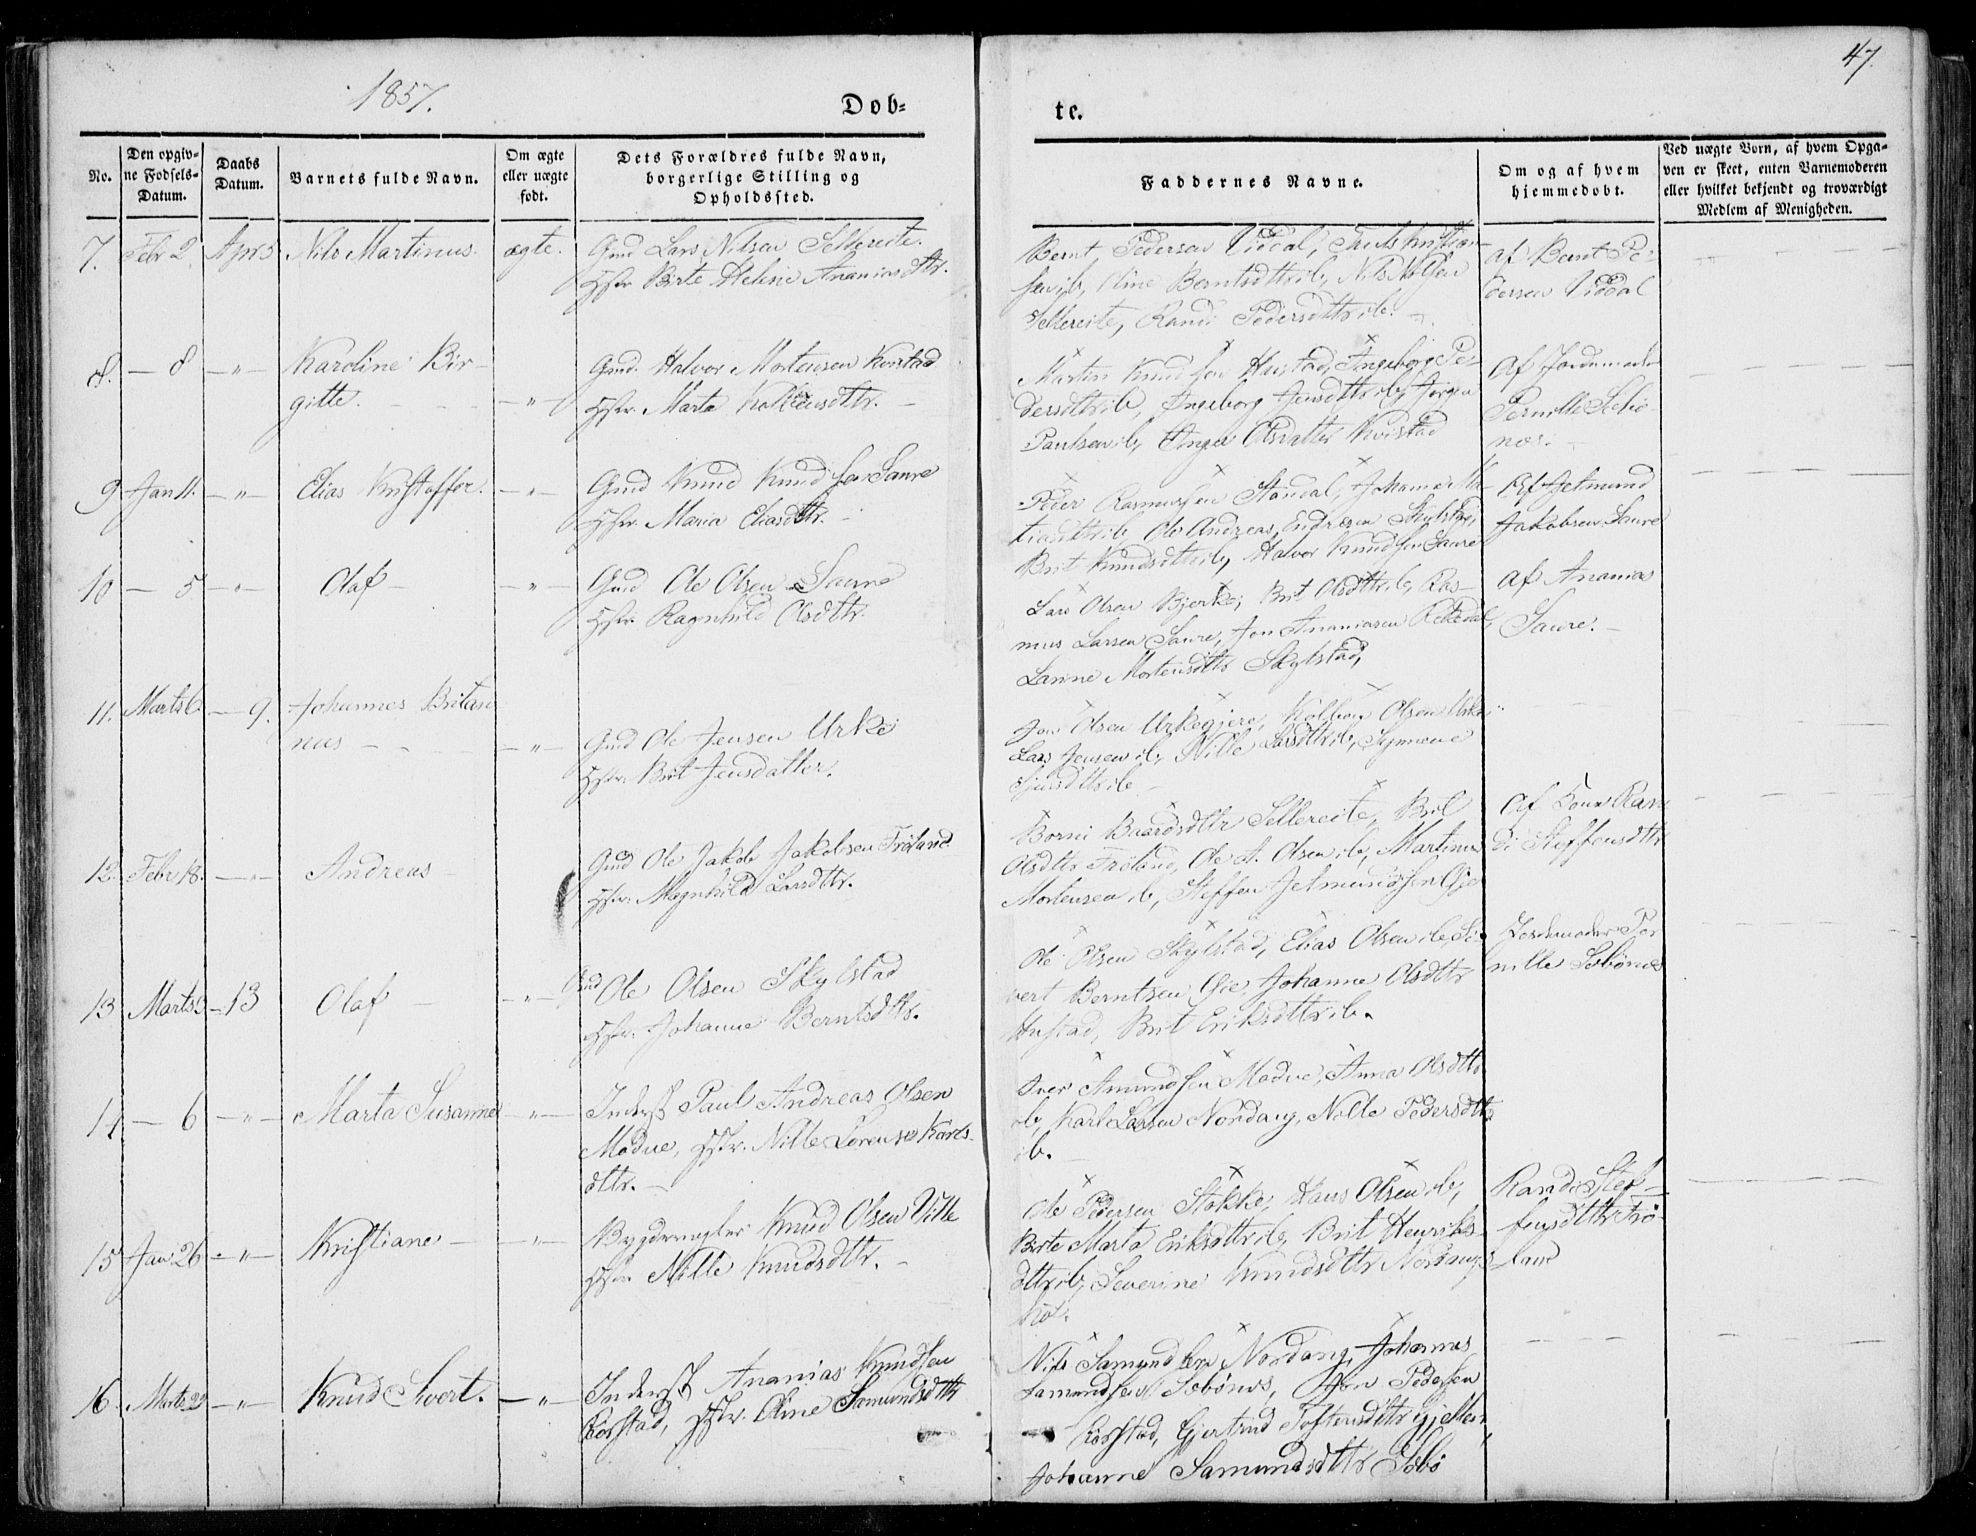 1857.
Døb-
te.
47.
No.
Den opgiv-
ne Fødsels-
Datum.
Daabs
Datum.
Barnets fulde Navn.
Om ægte
eller uægte
født.
Dets Forældres fulde Navn,
borgerlige Stilling og
Opholdssted.
Faddernes Navne.
Om og af hvem
hjemmedøbt.
Ved uægte Børn, af hvem Opga-
ven er skeet, enten Barnemoderen
eller hvilket bekjendt og troværdigt
Medlem af Menigheden.
7. Febr 2. Apr 5 Nils Martinus. ægte. Gmd Lars Nilsen Sellereite.
Hstr Birte Heline Ananiasdtr.
Bernt Pedersen Viddal,
ib, Oline Berntsdttr ib, Nils
Sellereite, Randi Pedersdttr ib.
af Bernt Pe-
dersen Viddal
8. — 8 — " — Karoline Bir-
gitte. — " — Gmd. Halvor Mortensen Kvistad
Hstr. Marta
Martin Knudsen Hustad, Ingeborg Pe-
dersdttr ib, Ingeborg Jensdttr ib, Jørgen
Paulsen ib, Inger Olsdatter Kvistad
Af Jordemoder
Pernille Sebø-
nes.
9. Jan 11. — " — Elias Kristoffer. — " — Gmd Knud Knudsen Saure
Hstr. Maria Eliasdttr.
Peder Rasmussen Standal, Johanne Ma-
tiasdttr ib, Ole Andreas Endresen Skylstad,
Brit Knudsdttr ib, Halvor Knudsen Saure
Af Jetmund
Jakobsen Saure
10 — 5 — " — Olaf — — " — Gmd Ole Olsen Saure
Hstr. Ragnhild Olsdttr.
Lars Olsen Bjerke, Brit Olsdttr ib, Ras-
mus Larsen Saure, Jon Ananiasen Rekkedal,
Larine Mortensdttr Skylstad,
af Ananias
Saure.
11. Marts 6. — 9. Johannes Britan
nus — — " — Gmd Ole Jensen Urke
Hstr. Brit Jensdatter.
Jon Olsen Urkegjere, Kolbein Olsen Urke,
Lars Jensen ib, Nille Larsdttr ib, Synneve
Sjursdttr ib.
12. Febr 18. — " — Andreas — Gmd Ole Jakob Jakobsen Frøland
Hstr. Magnhild Larsdttr.
Borni Baardsdttr Sellereite, Brit
Olsdttr Frøland, Ole A. Olsen ib, Martinus
Mortensen ib, Steffen Jetmundsen Øie
Af Kone Ran
di Steffensdttr
13 Marts 5 — 13 Olaf — — " — Gmd Ole Olsen Skylstad
Hstr. Johanne Berntsdttr.
Ole Olsen Skylstad, Elias Olsen ib, Si-
vert Berntsen Øie, Johanne Olsdttr
Hustad, Brit Eriksdttr ib.
Jordemoder Per
nille Sebønes
14 — 6 — " — Marta Susanne — " — Inderst Paul Andreas Olsen
Modve, Hstr. Nille Lorense Karls-
dttr.
Iver Amundsen Modve, Anna Olsdttr
ib, Karl Larsen Nordang, Nille Pedersdttr
ib.
15 Jan 26 — " — Kristiane — — " — Bygdemægler Knud Olsen Vitte
Hstr. Nille Knudsdttr.
Ole Pedersen Stokke, Hans Olsen ib,
Birte Marta Eriksdttr ib, Brit Henriks-
dttr ib, Severine Knudsdttr Nordang-
Randi Stef-
fensdttr Frø-
land
16. Marts 22 — " — Knud Sivert. — " — Inderst Ananias Knudsen
Korstad, Hstr. Oline Samundsdttr
Nils Samundsen Nordang, Johannes
Samundsen Sebønes, Jon Pedersen
Korstad, Gjertrud Tostensdttr
Johanne Samundsdttr Sebø